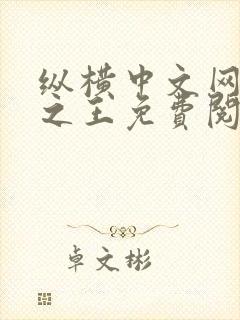 纵横中文网
之王免費閱
卓文彬